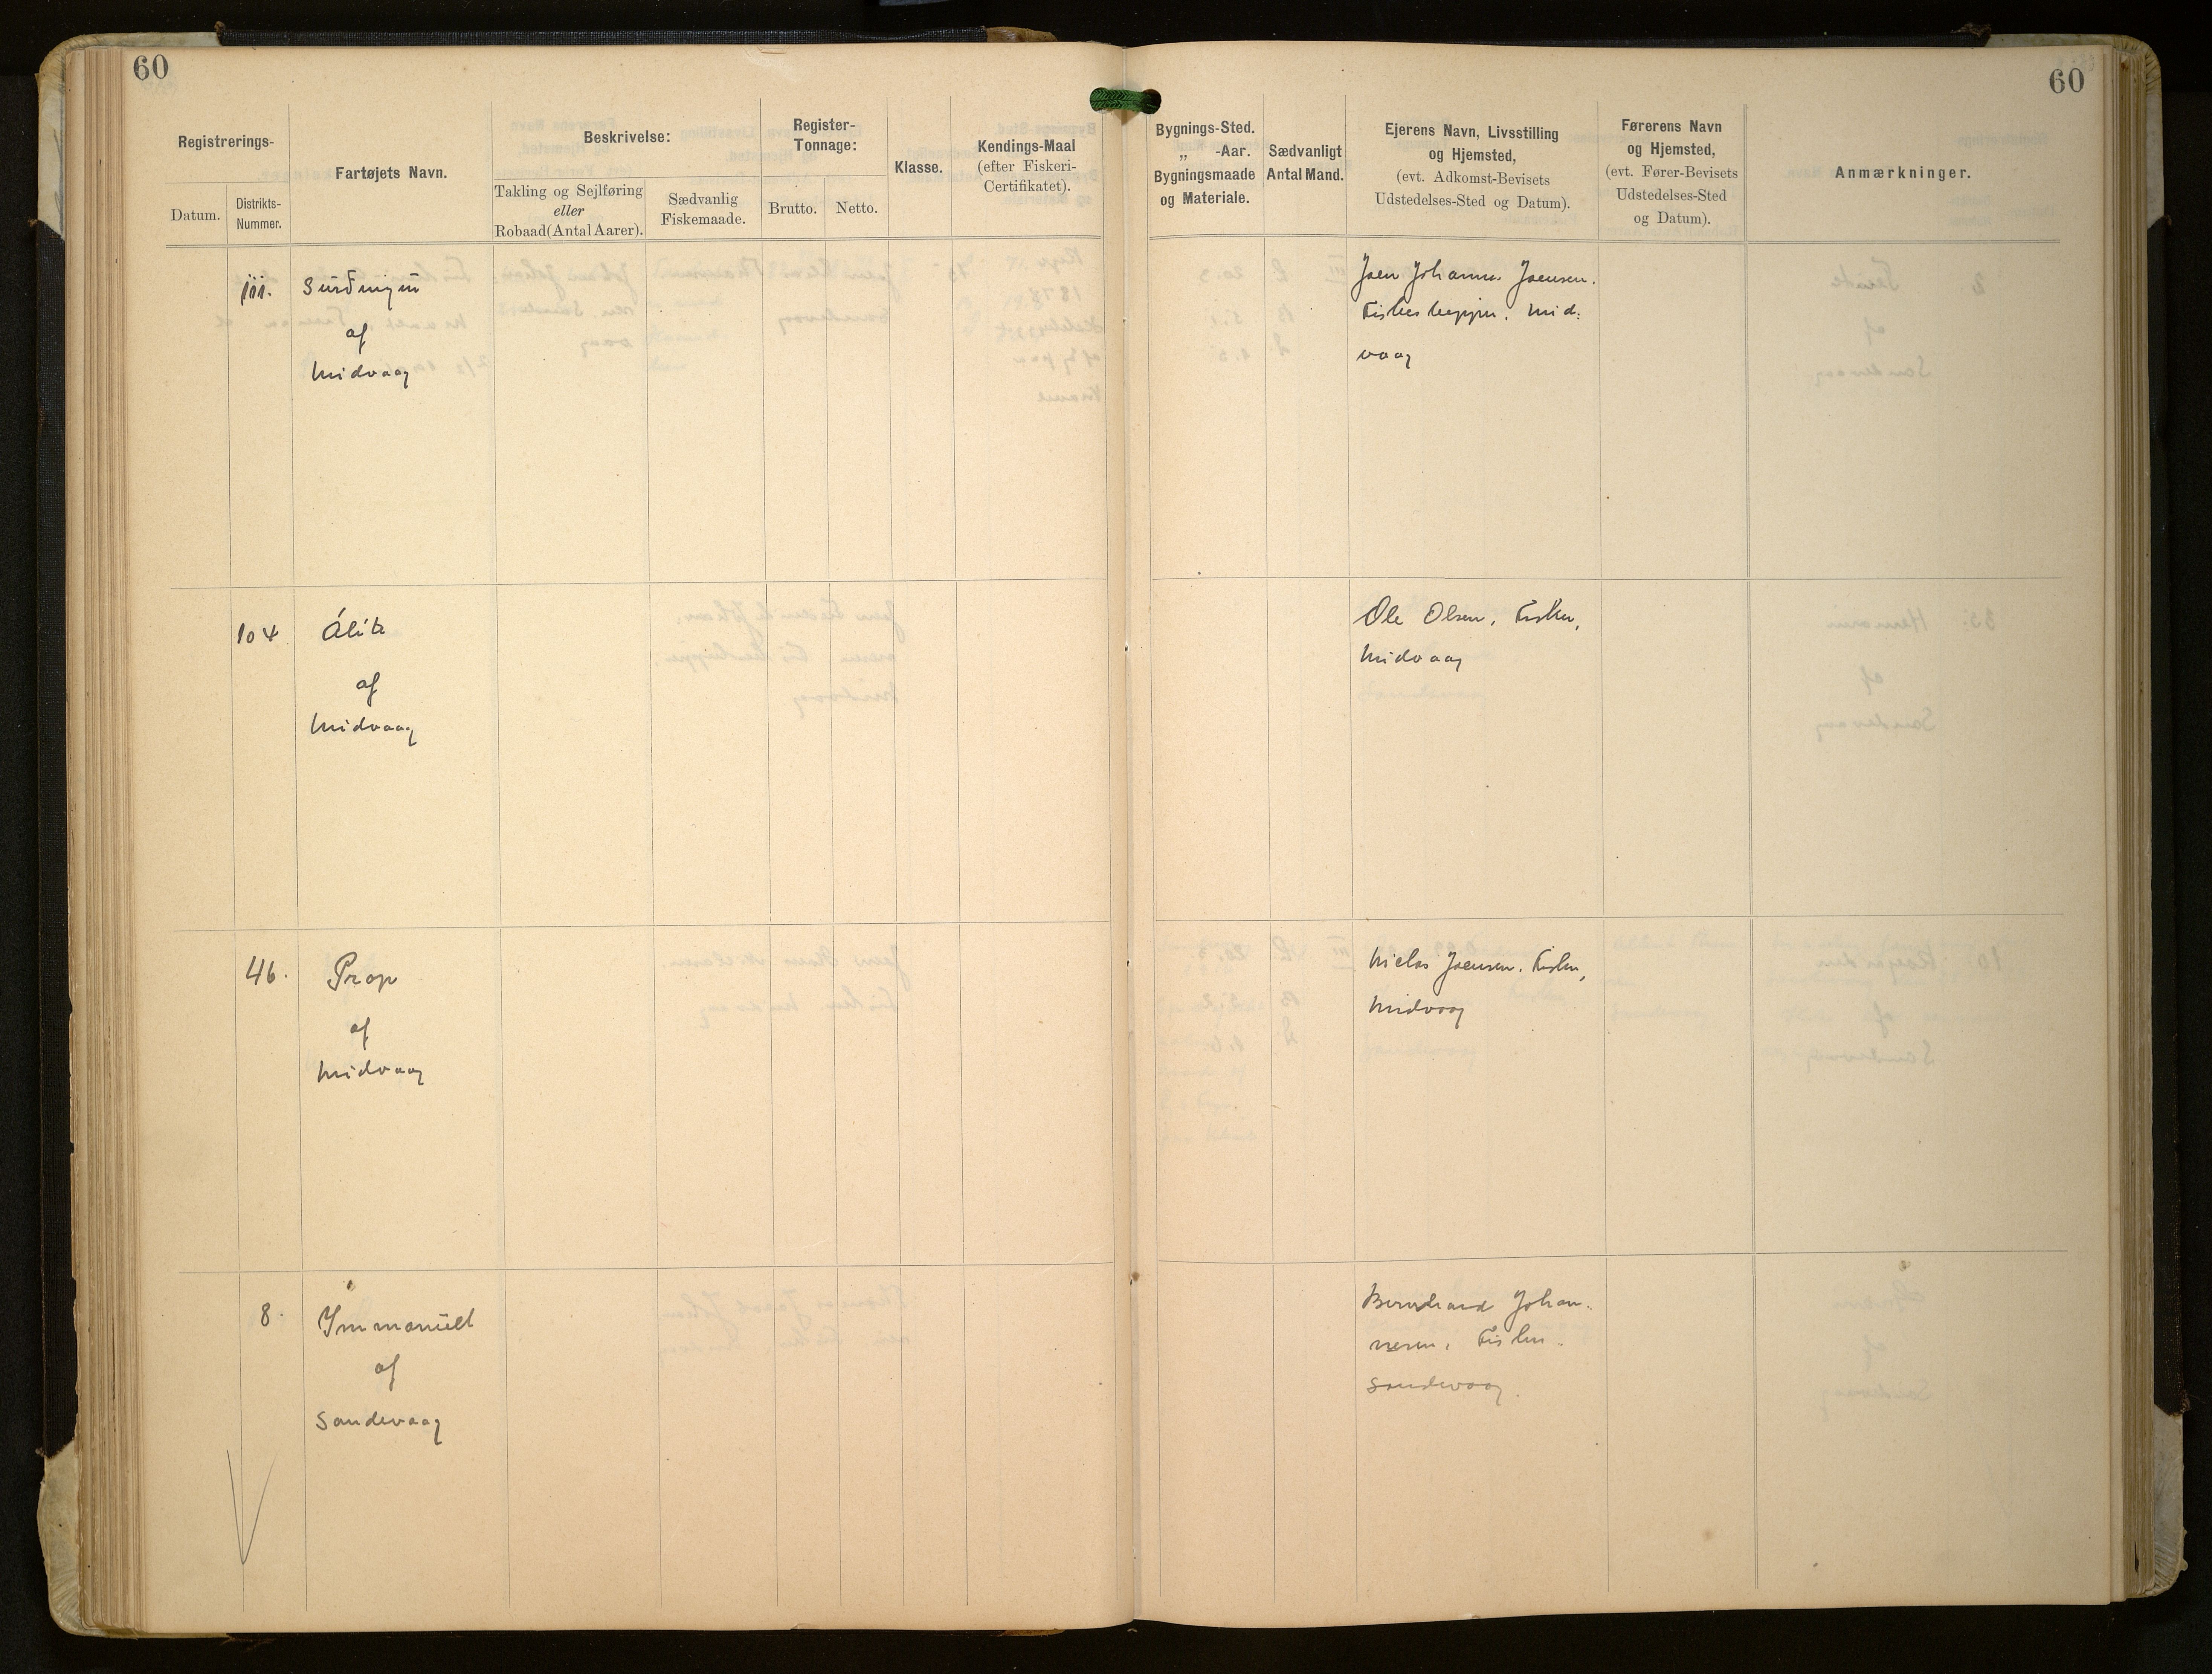 60
60
Registrerings-
Datum.
Distrikts-
Nummer.
Fartøjets Navn.
Beskrivelse:
Takling og Sejlføring
eller
Robaad (Antal Aarer).
Sædvanlig
Fiskemaade.
Register-
Tonnage:
Brutto.
Netto.
Klasse.
Kendings-Maal
(efter Fiskeri-
Certifikatet).
Bygnings-Sted.
„ -Aar.
Bygningsmaade
og Materiale.
Sædvanligt
Antal Mand.
Ejerens Navn, Livsstilling
og Hjemsted,
(evt. Adkomst-Bevisets
Udstedelses-Sted og Datum).
Førerens Navn
og Hjemsted,
(evt. Fører-Bevisets
Udstedelses-Sted
og Datum).
Anmærkninger.
111.
af
Midvaag
Joen Johannes Joensen.
Mid-
vaag
104
af
Midvaag
Ole Olsen, Fisker,
Midvaag
46.
Prop
af
Midvaag
Niclas Joensen. Fisker,
Midvaag
8.
Immanuel
af
Sandevaag
Bernhard Johan-
nesen, Fisker.
Sandevaag.